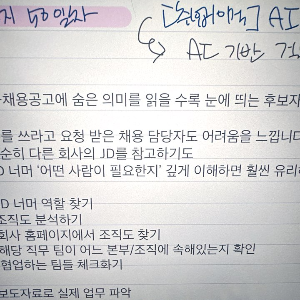 [현협이력] AI
AI 기반
채용공고에 숨은 의미를 읽을 수록 눈에 띄는 후보자
를 쓰라고 요청 받은 채용 담당자도 어려움을 느낍니다
순히 다른 회사의 JD를 참고하기도
D 너머 '어떤 사람이 필요한지' 깊게 이해하면 훨씬 유리
D 너머 역할 찾기
조직도 분석하기
회사 홈페이지에서 조직도 찾기
해당 직무 팀이 어느 본부/조직에 속해있는지 확인
협업하는 팀들 체크화기
보도자료로 실제 업무 파악